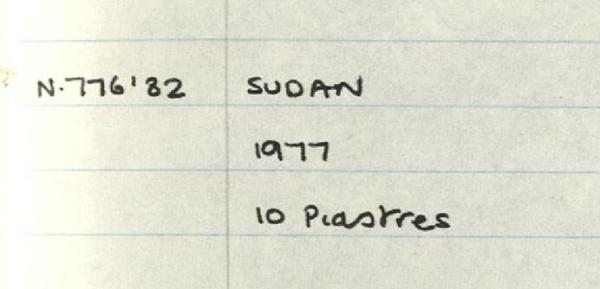 N.776'82 SUDAN
1977
10 Piastres